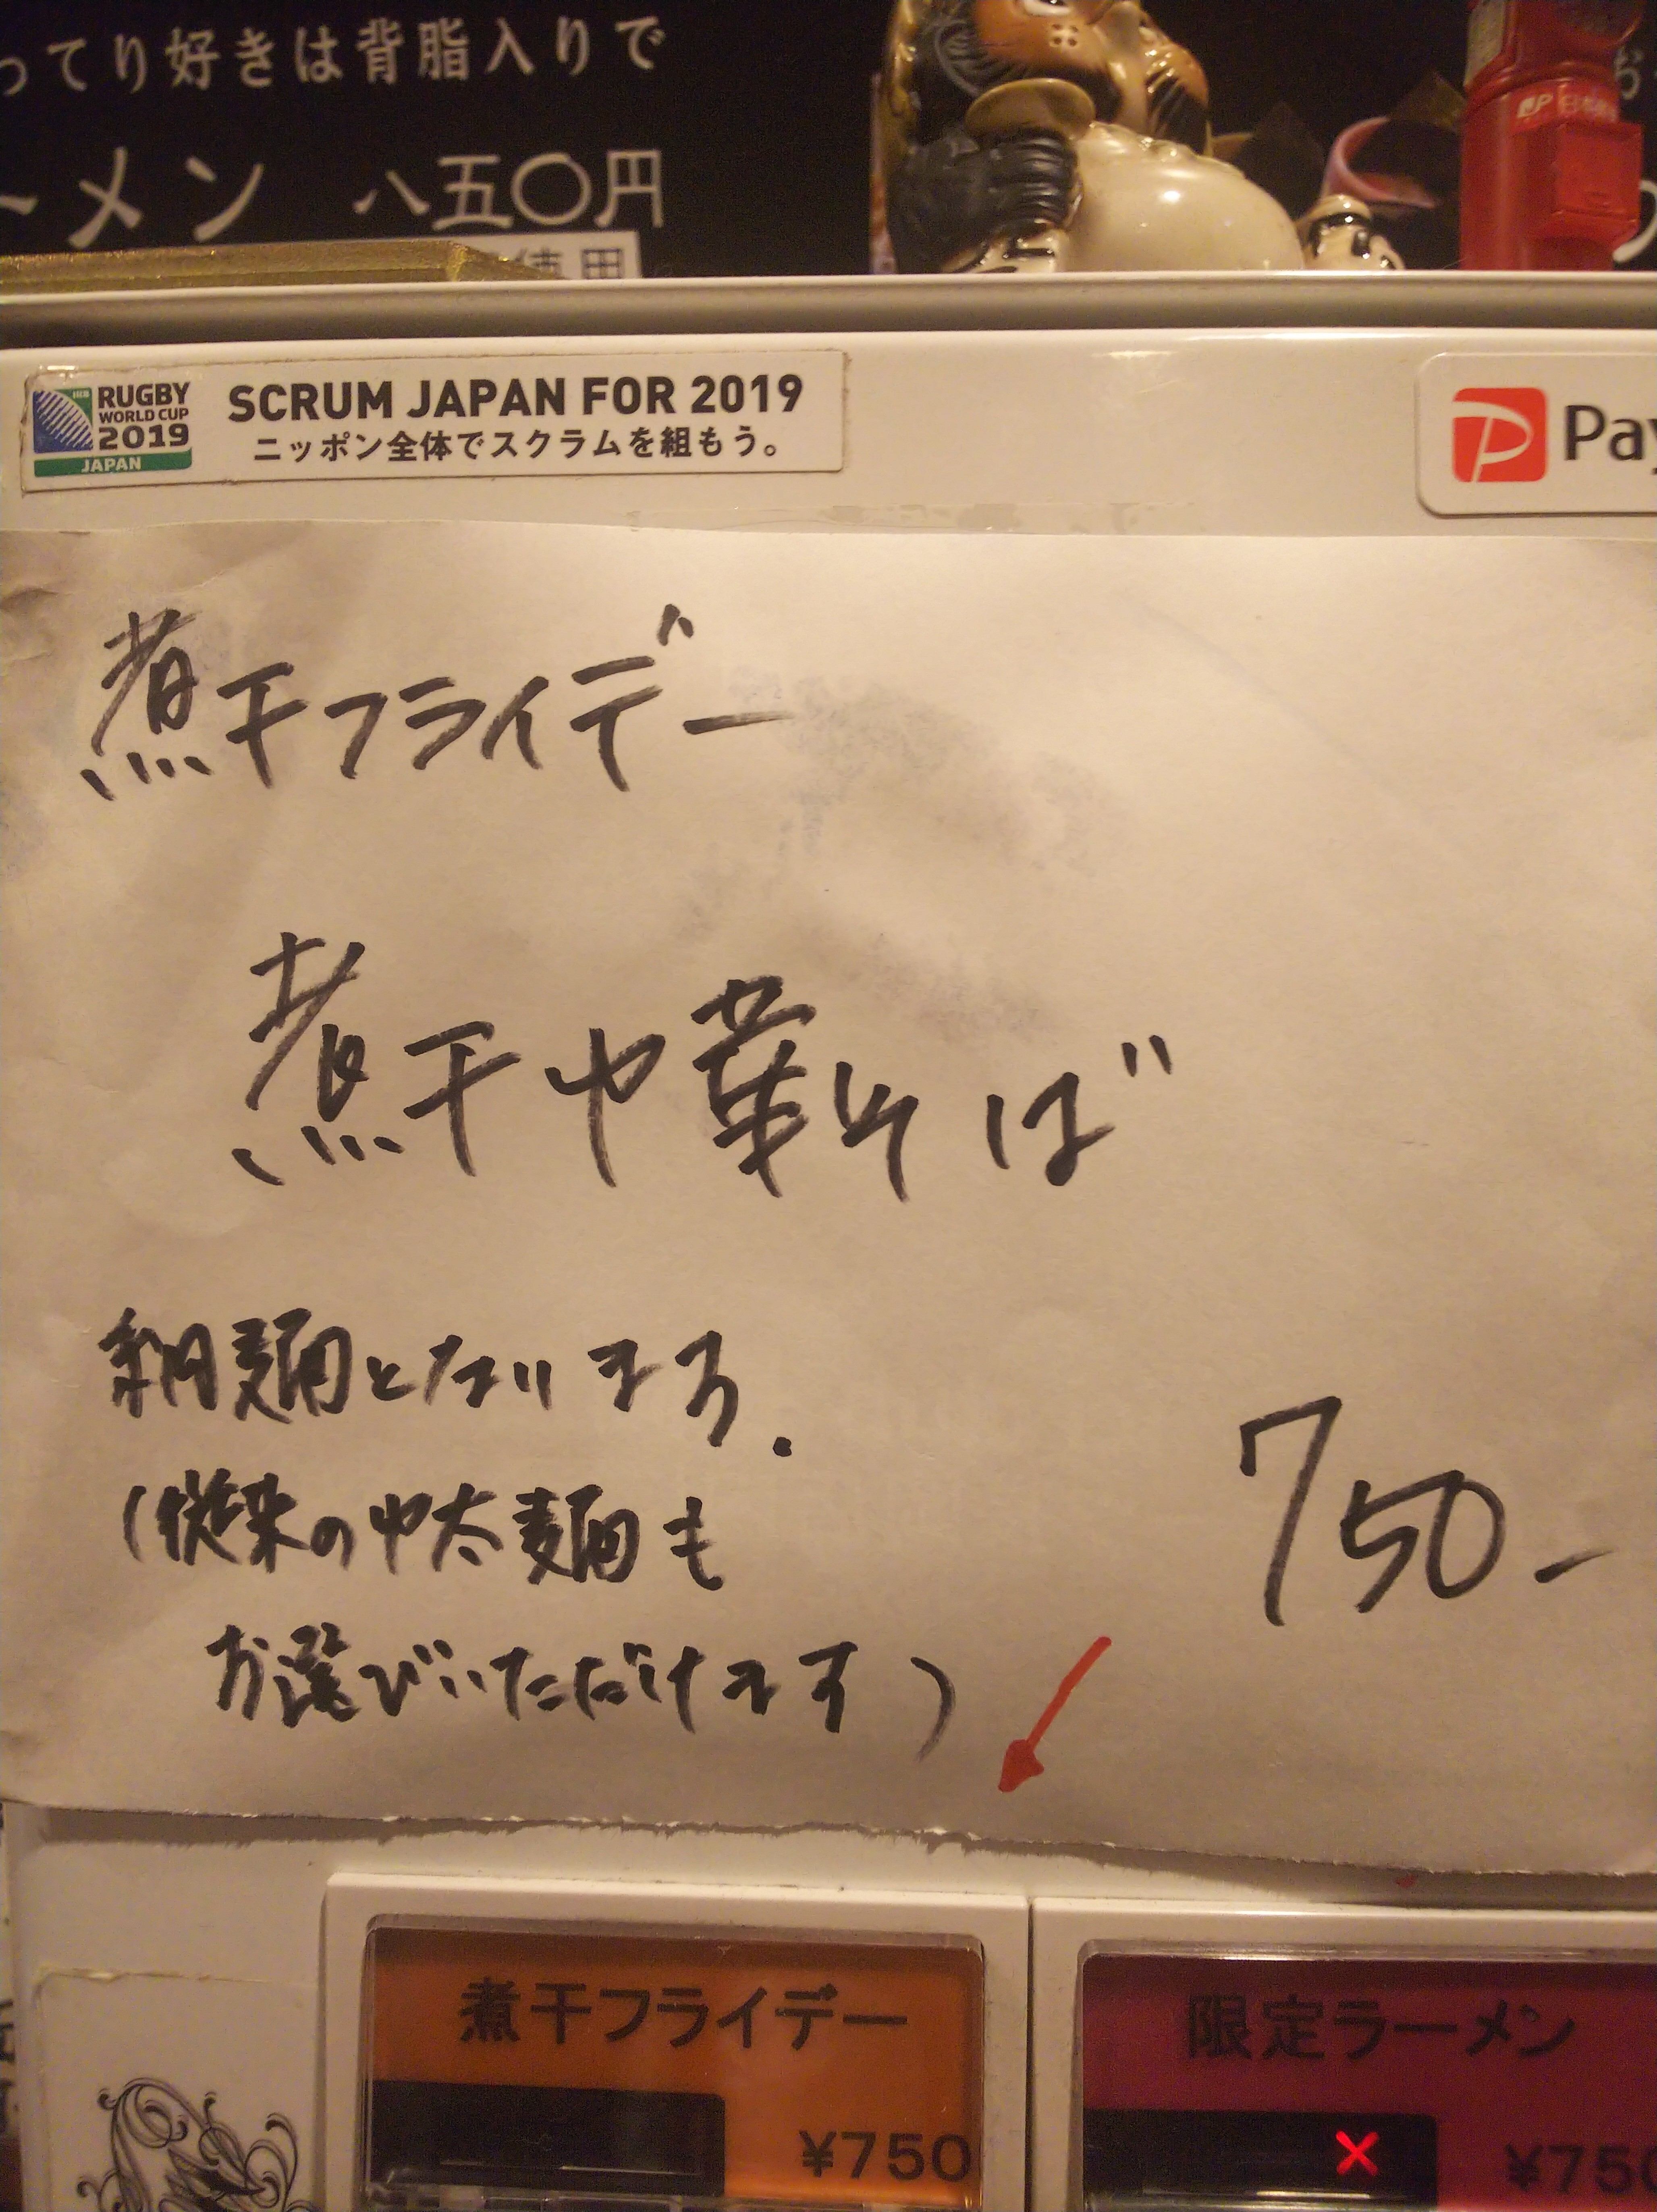 ってり好きは背脂入りで
ーメン 八五〇円
RUGBY
WORLD CUP
2019
JAPAN
SCRUM JAPAN FOR 2019
ニッポン全体でスクラムを組もう。
Pay
煮干フライデー
煮干中華そば
細麺となります.
(従来の中太麺も
お選びいただけます)
750-
煮干フライデー
¥750
限定ラーメン
¥750